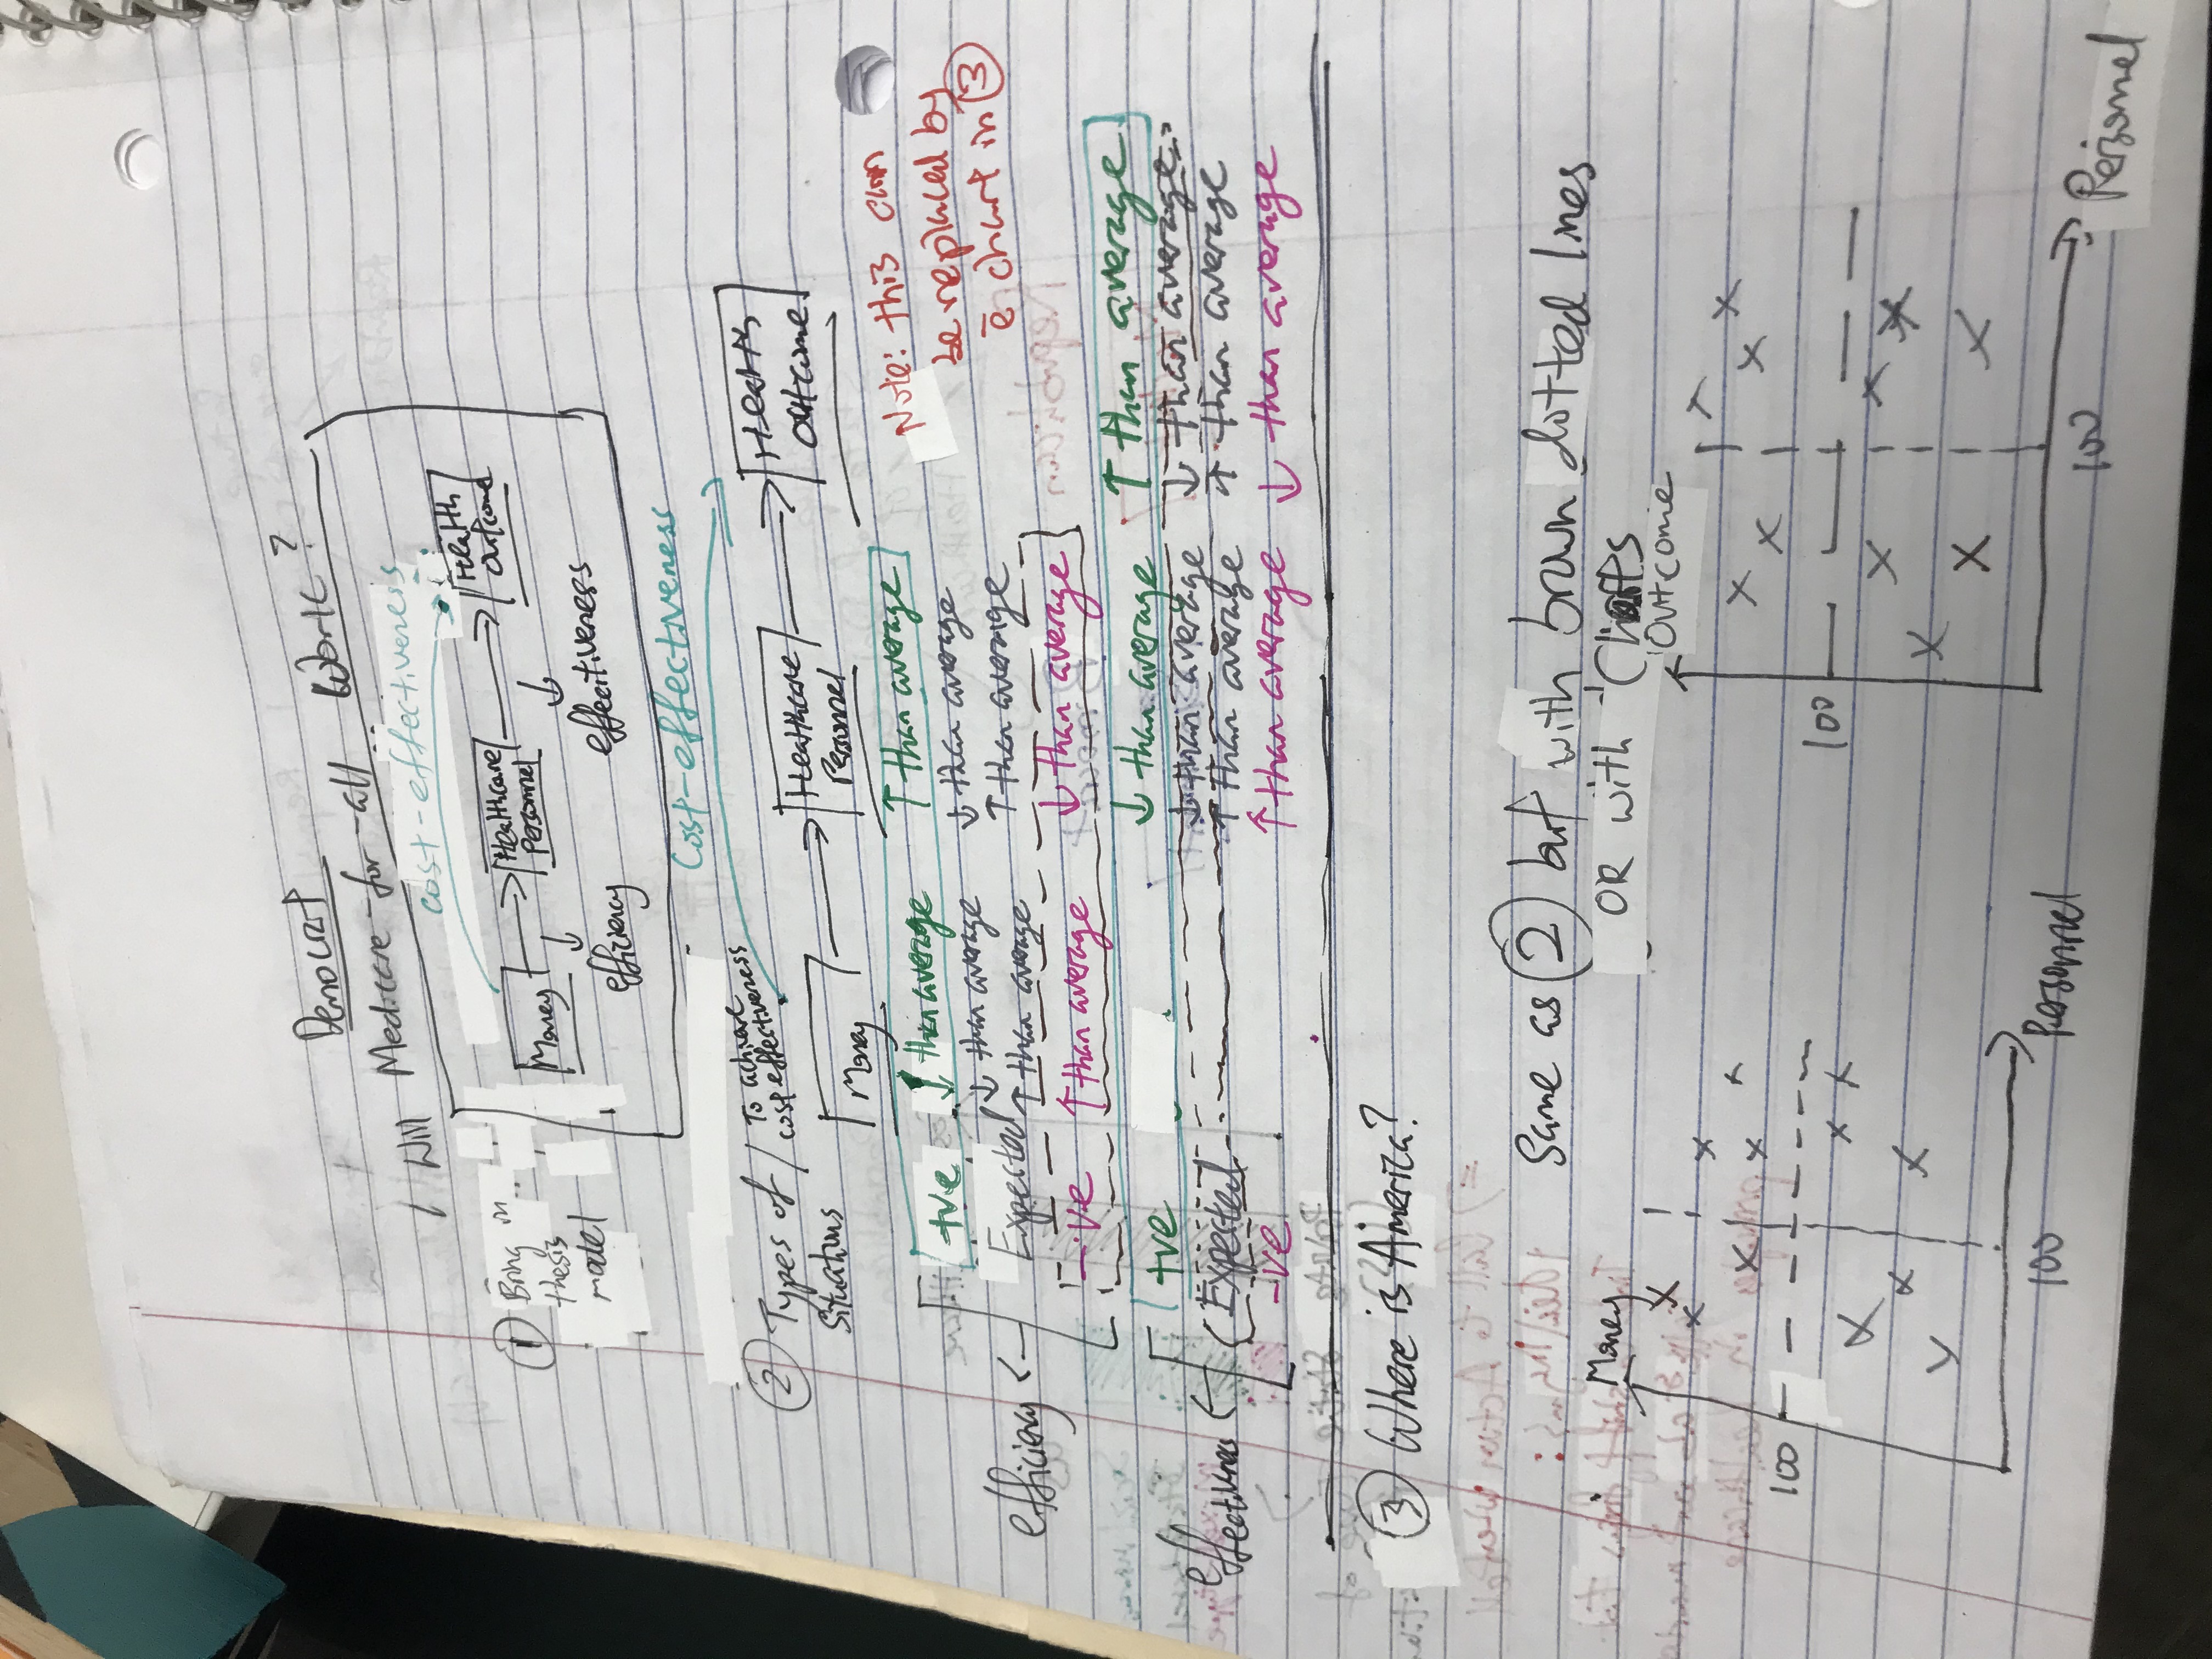 Democrat
Will Medicare-for-all Work?
① Bring in
thesis
model
cost-effectiveness
Money
Healthcare
Personnel
Health
outcome
efficiency
effectiveness
② Types of / To achieve
Situations
cost effectiveness
Cost-effectiveness
Money
Healthcare
Personnel
Health
outcome
Note: this can
be replaced by
c̄ chart in ③
efficiency
+ve ↓ than average ↑ than average
Expected ↓ than average ↓ than average
↑ than average ↑ than average
-ve ↑ than average ↓ than average
effectiveness
+ve ↓ than average ↑ than average
Expected ↓ than average ↓ than average
↑ than average ↑ than average
-ve ↑ than average ↓ than average
③ Where is America?
Same as ② but with brown dotted lines
OR with Charts
Money
100
100
Personnel
Outcome
100
100
Personnel